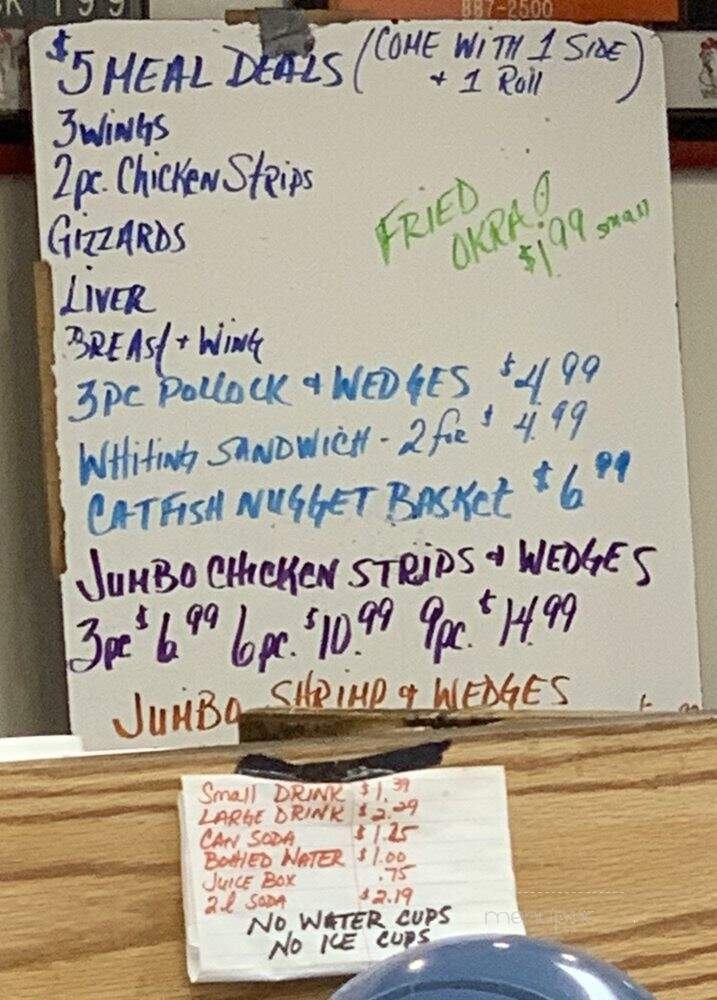 887-2500
$5 MEAL DEALS (COME WITH 1 SIDE
+ 1 Roll)
3 WINGS
2pc. CHICKEN STRIPS
GIZZARDS
FRIED
OKRA! $1.99 small
LIVER
BREAST + WING
3PC POLLOCK & WEDGES $4.99
WHITING SANDWICH - 2 for $4.99
CATFISH NUGGET BASKET $6.99
JUMBO CHICKEN STRIPS & WEDGES
3pc $6.99 6pc. $10.99 9pc. $14.99
JUMBO SHRIMP & WEDGES
Small DRINK $1.39
LARGE DRINK $2.29
CAN SODA $1.25
BOTTLED WATER $1.00
JUICE BOX .75
2L SODA $2.19
NO WATER CUPS
NO ICE CUPS